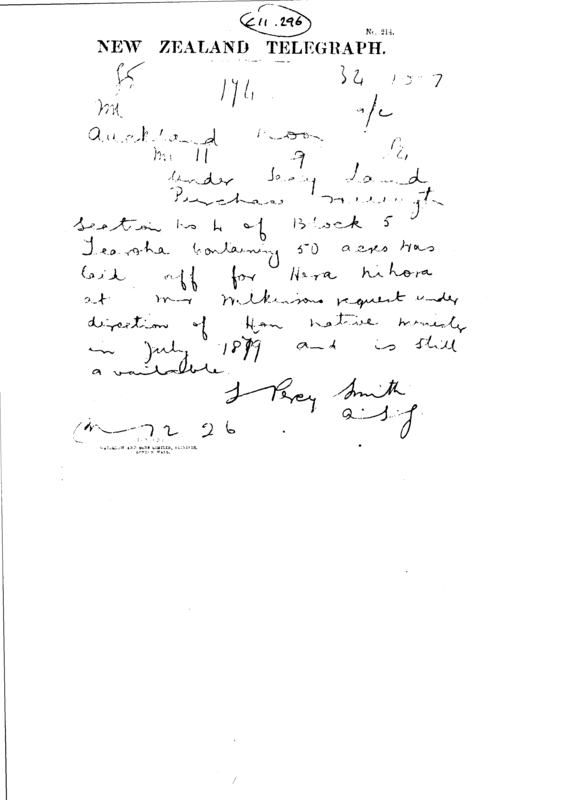 E11.296
No. 214.
NEW ZEALAND TELEGRAPH.
174
Auckland noon
11 9
Under Secy Land
Purchase
Section No 4 of Block 5
Tearoha containing 50 acres was
laid off for Hera Nihora
at Mr Wilkinsons request under
direction of Hon Native Minister
in July 1879 and is still
available
S Percy Smith
A S G
72 26